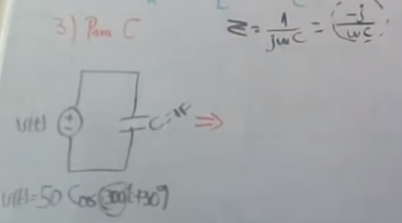 3) Para C
Z = 1/jωC = (-j/ωC)
v(t)
C=1F ⇒
v(t)=50 Cos(300t+30°)